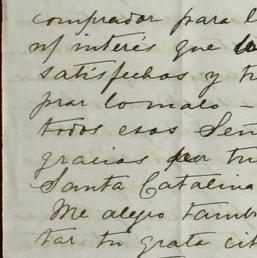 comprador para l
n/ interés que
satisfechos y t
prar lo malo –
todos esos Señ
gracias por tu
Santa Catalina
Me alegro tamb
tar tu grata ci